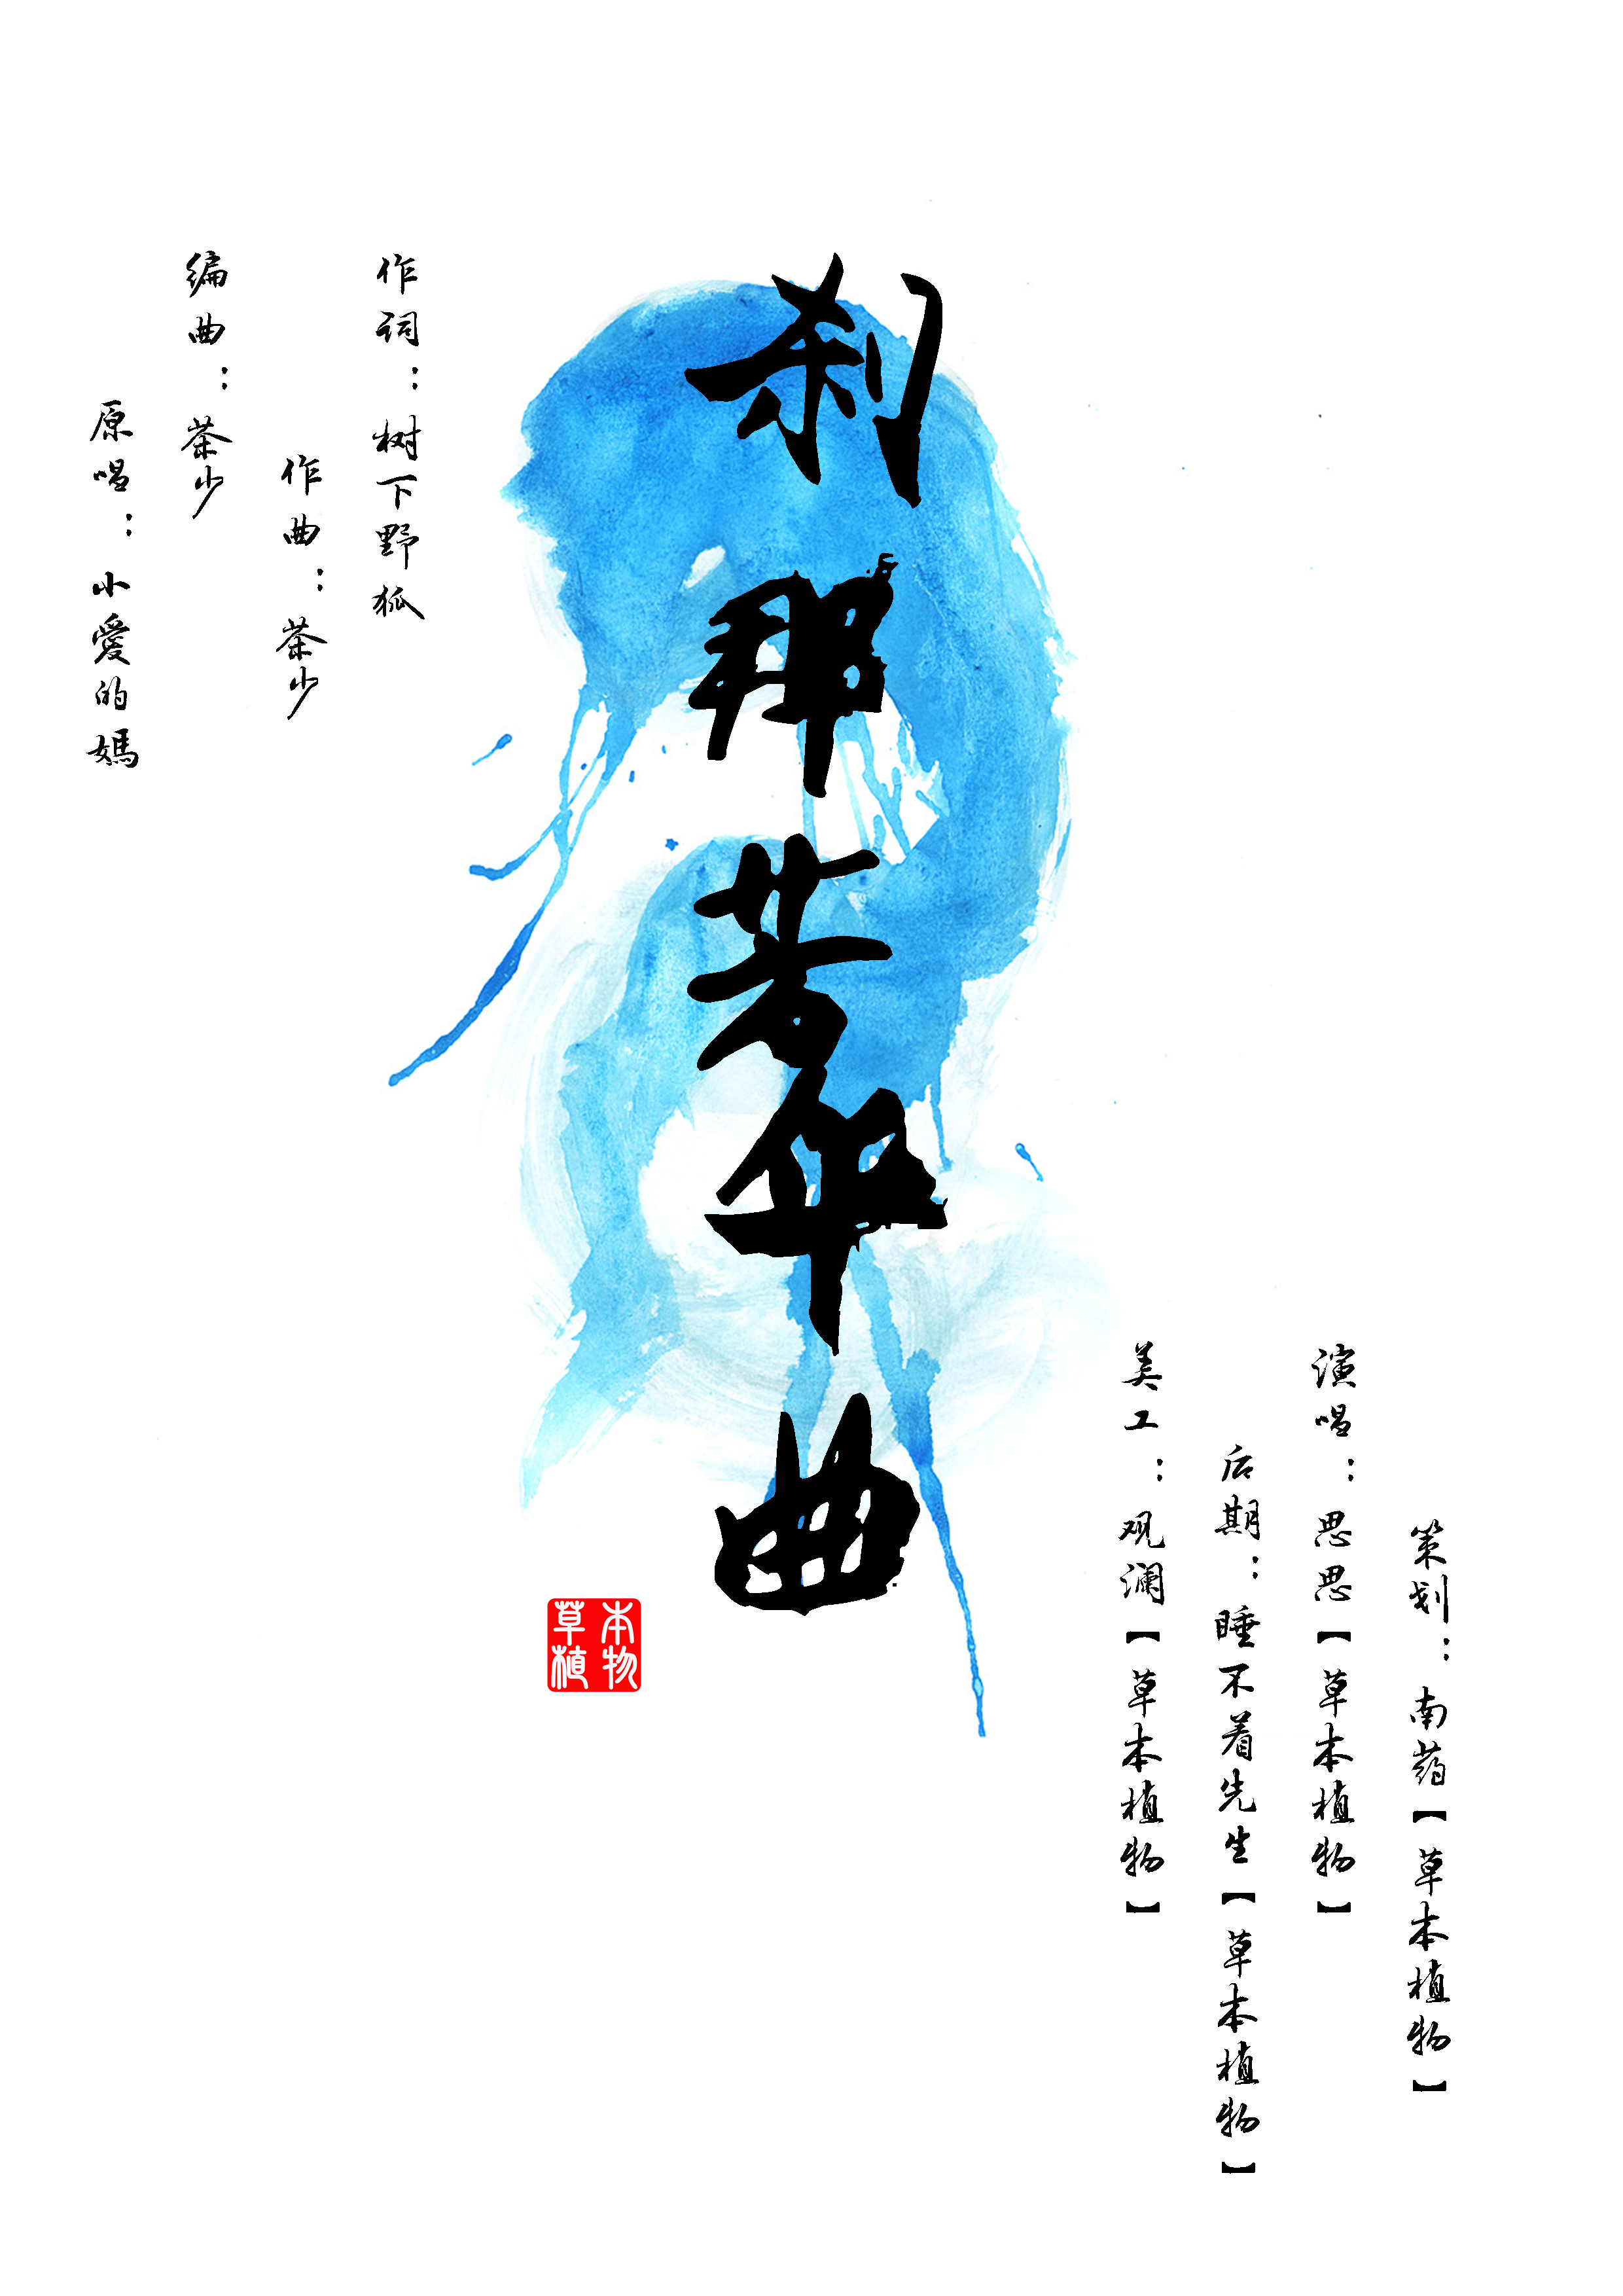 刹那芳华曲
作词：树下野狐
作曲：茶少
编曲：茶少
原唱：小愛的媽
策划：南药【草本植物】
演唱：思思【草本植物】
后期：睡不着先生【草本植物】
美工：观澜【草本植物】
草本
植物